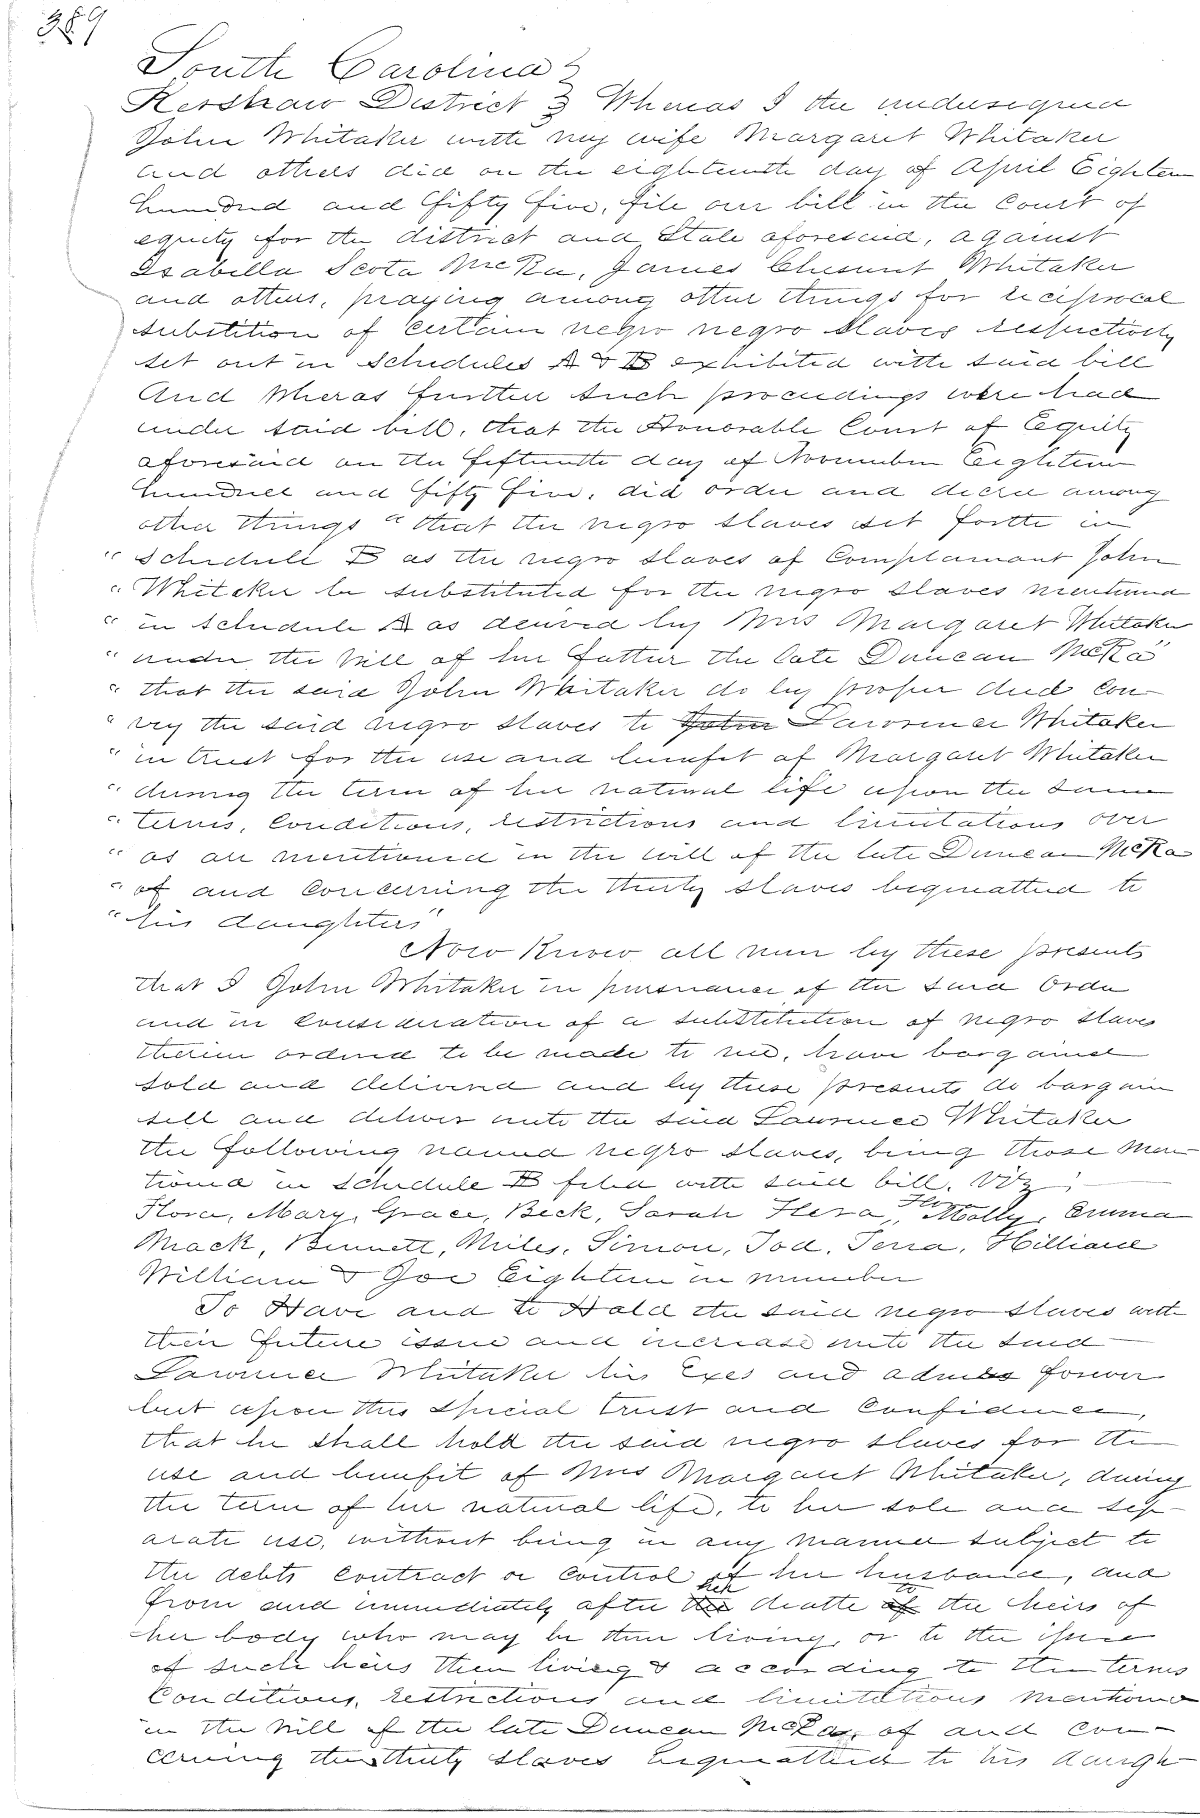 389
South Carolina }
Kershaw District } Whereas I the undersigned
John Whitaker with my wife Margaret Whitaker
and others did on the eighteenth day of April Eighteen
hundred and fifty five, file our bill in the Court of
equity for the district and State aforesaid, against
Isabella Scota McRa, James Chesnut Whitaker
and others, praying among other things for reciprocal
substition of certain negro negro slaves respectively
set out in Schedules A & B exhibited with said bill
And Wheras further such proceedings were had
under said bill, that the Honorable Court of Equity
aforesaid on the fifteenth day of November Eighteen
hundred and fifty five, did order and decree among
other things " that the negro slaves set forth in
" Schedule B as the negro slaves of Complainant John
" Whitaker be substituted for the negro slaves mentioned
" in Schedule A as derived by Mrs Margaret Whitaker
" under the will of her father the late Duncan McRa"
" that the said John Whitaker do by proper deed con-
" vey the said negro slaves to John Lawrence Whitaker
" in trust for the use and benefit of Margaret Whitaker
" during the term of her natural life upon the same
" terms, conditions, restrictions and limitations over
" as are mentioned in the will of the late Duncan McRa
" of and concerning the thirty slaves bequeathed to
" his daughters"
Now Know all men by these presents
that I John Whitaker in pursuance of the said Order
and in consideration of a substitution of negro slaves
therein ordered to be made to me, have bargained
sold and delivered and by these presents do bargain
sell and deliver unto the said Lawrence Whitaker
the following named negro slaves, being those men-
tioned in Schedule B filed with said bill. Viz;
Flora, Mary, Grace, Beck, Sarah Flora, Molly, Emma
Mack, Bennett, Miles, Simon, Tod, Hilliard
William & Joe Eighteen in number
To Have and to Hold the said negro slaves with
their future issue and increase unto the said
Lawrence Whitaker his Exes and admrs forever
but upon this special trust and confidence,
that he shall hold the said negro slaves for the
use and benefit of Mrs Margaret Whitaker, during
the term of her natural life, to her sole and sep-
arate use, without being in any manner subject to
the debts contract or control of her husband, and
from and immediately after the her death of to the heirs of
her body who may be then living, or to the issue
of such heirs then living & according to the terms
Conditions, restrictions and limitations mentioned
in the will of the late Duncan McRa, of and con-
cerning the thirty slaves bequeathed to his daugh-